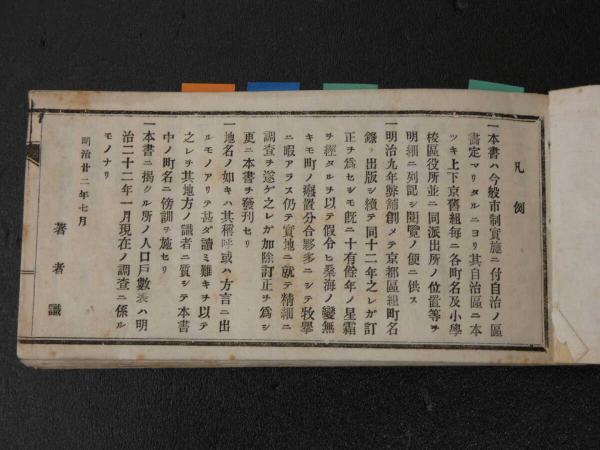 凡例
一本書ハ今般市制實施ニ付自治ノ區
書定マリタルニヨリ其自治區ニ本
ツキ上下京舊組毎ニ各町名及小學
校區役所並ニ同派出所ノ位置等ヲ
明細ニ列記シ閲覽ノ便ニ供ス
一明治九年弊舖創メテ京都區組町名
錄ヲ出版シ續テ同十二年之レガ訂
正ヲ爲セシモ既ニ十有餘年ノ星霜
ヲ經タルヲ以テ假令ヒ桑海ノ變無
キモ町ノ癈置分合夥多ニシテ枚擧
ニ暇アラス仍テ實地ニ就テ精細ニ
調査ヲ遂ケ之レガ加除訂正ヲ爲シ
更ニ本書ヲ發刊セリ
一地名ノ如キハ其稱呼或ハ方言ニ出
ルモノアリテ甚ダ讀ミ難キヲ以テ
之レヲ其地方ノ識者ニ質シテ本書
中ノ町名ニ傍訓ヲ施セリ
一本書ニ揭クル所ノ人口戶數表ハ明
治二十二年一月現在ノ調査ニ係ル
モノナリ
明治廿二年七月
著者識